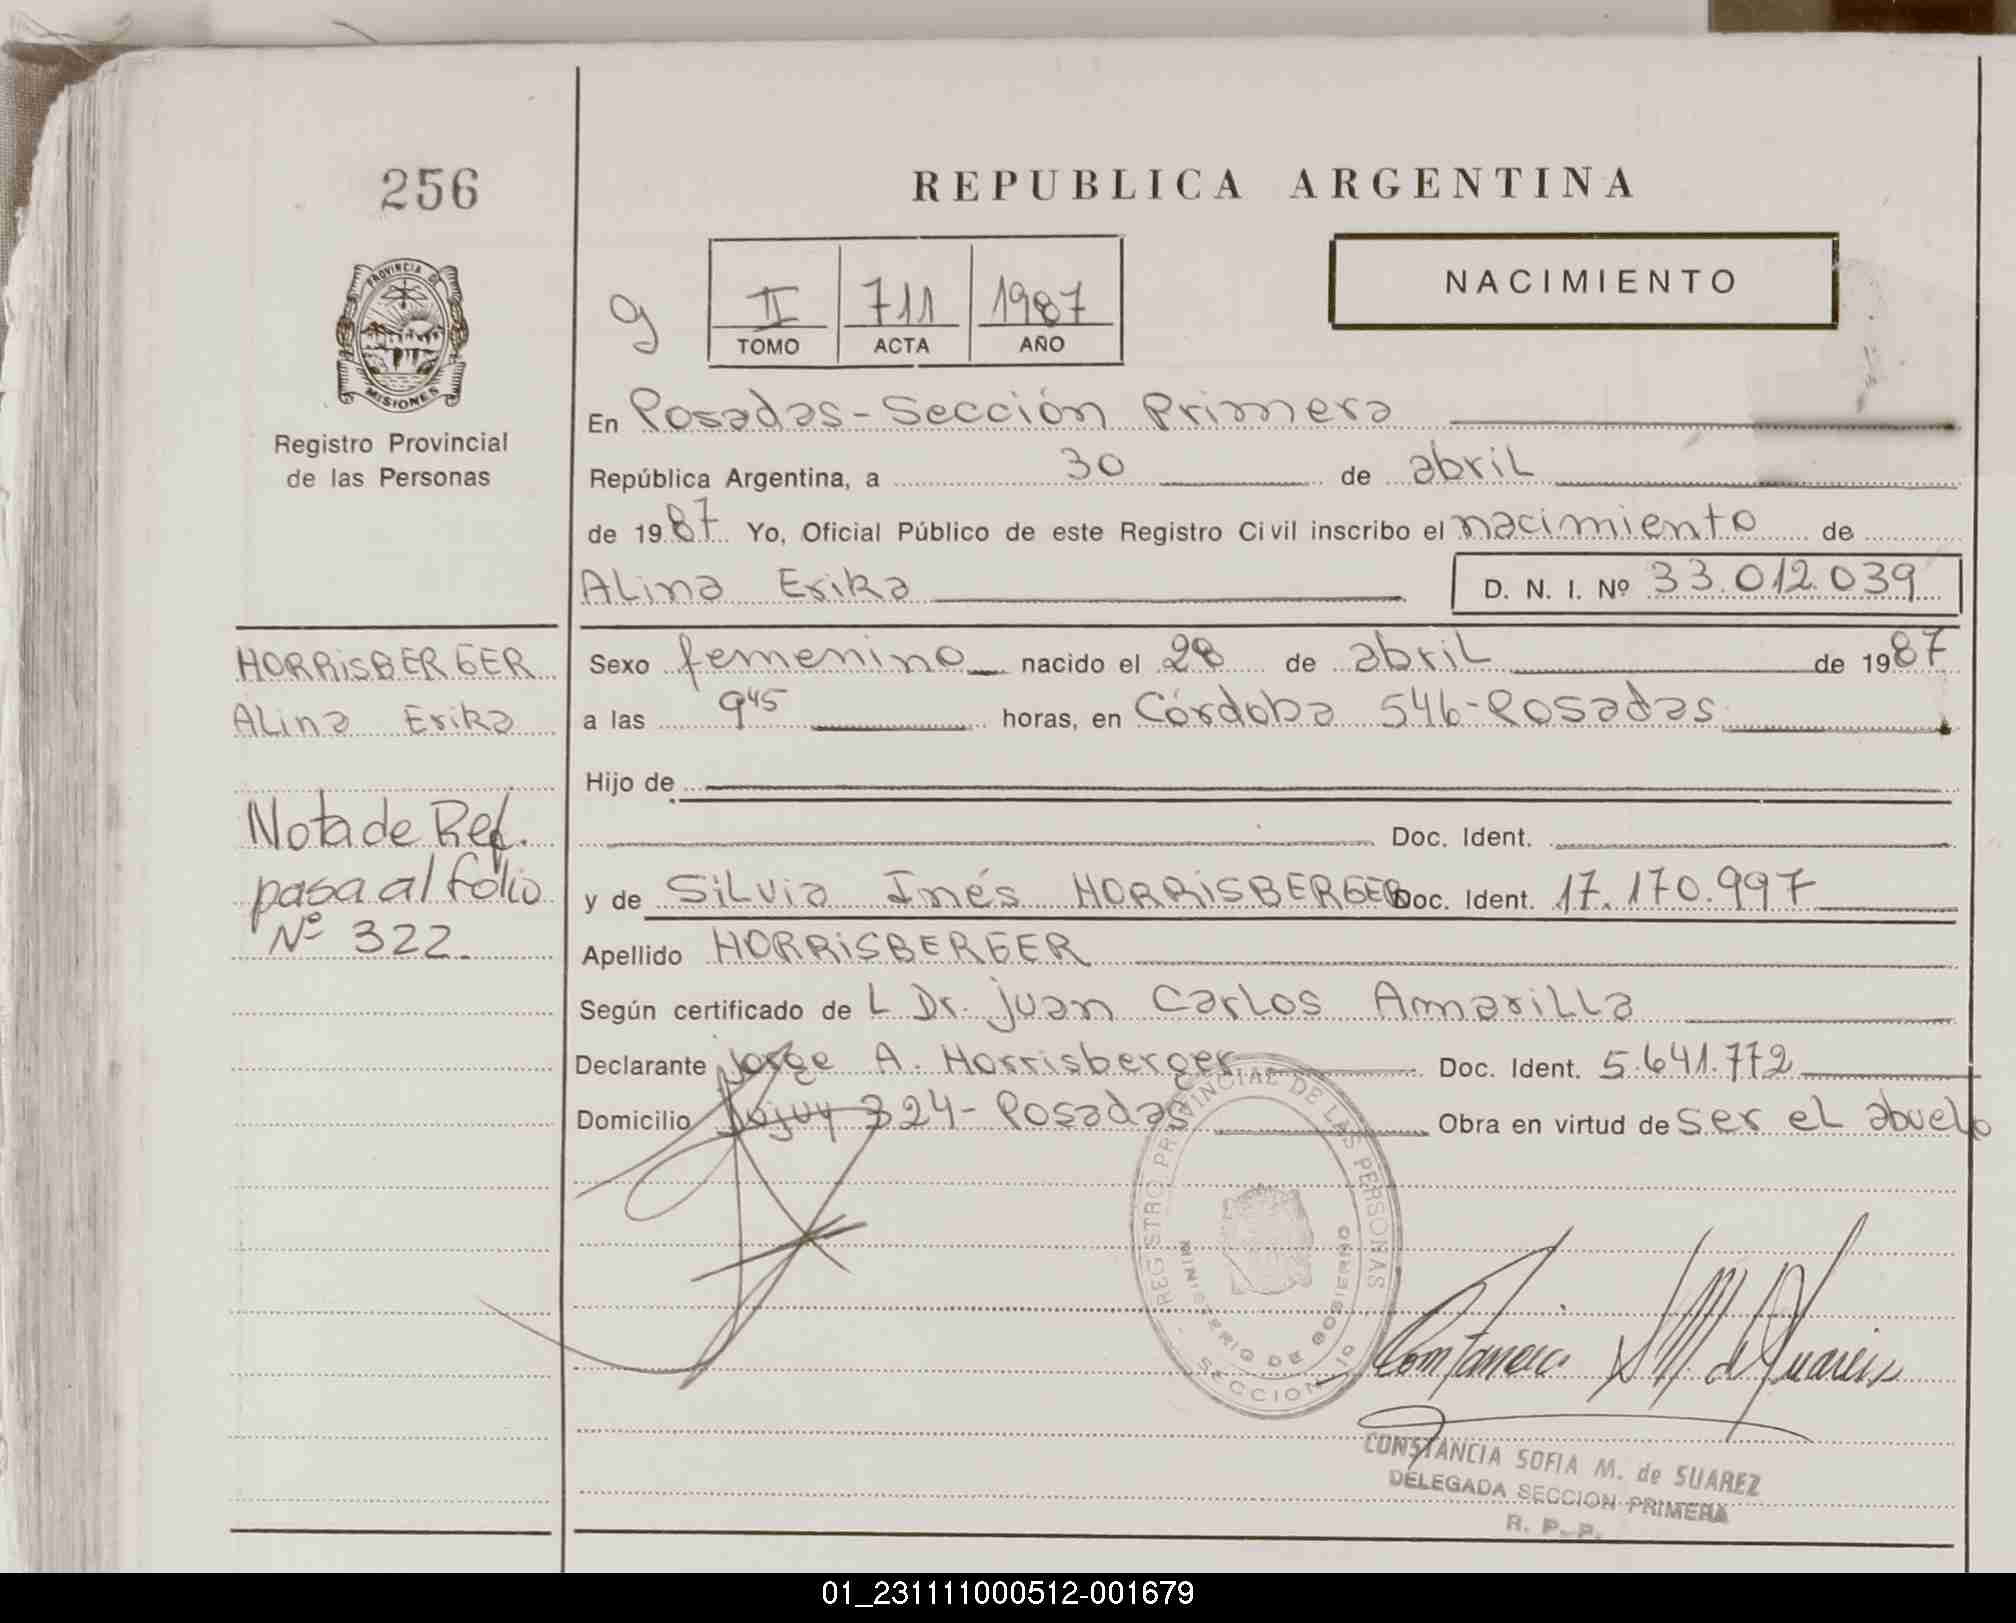 256
REPUBLICA ARGENTINA
PROVINCIA DE
MISIONES
Registro Provincial
de las Personas
g
II 711 1987
TOMO ACTA AÑO
NACIMIENTO
En Posadas-Sección Primera
República Argentina, a 30 de abril
de 1987 Yo, Oficial Público de este Registro Civil inscribo el nacimiento de
Alina Erika D. N. I. Nº 33.012.039
HORRISBERGER
Alina Erika
Nota de Ref.
pasa al folio
Nº 322.
Sexo femenino nacido el 28 de abril de 1987
a las 9 45 horas, en Córdoba 546-Posadas
Hijo de
Doc. Ident.
y de Silvia Inés HORRISBERGER Doc. Ident. 17.170.997
Apellido HORRISBERGER
Según certificado de L Dr. Juan Carlos Amarilla
Declarante Jorge A. Horrisberger Doc. Ident. 5.641.772
Domicilio Jujuy 324-Posadas Obra en virtud de ser el abuelo
REGISTRO PROVINCIAL DE LAS PERSONAS
MINISTERIO DE GOBIERNO
SECCION 1º
Constancia S M. de Suarez
CONSTANCIA SOFIA M. de SUAREZ
DELEGADA SECCION PRIMERA
R. P. P.
01_231111000512-001679